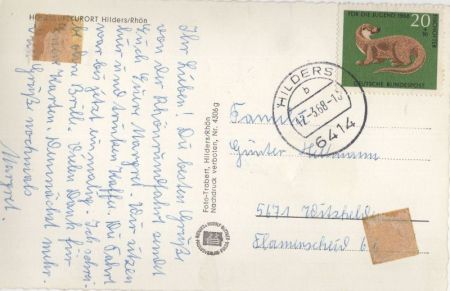 HÖ LUFTKURORT Hilders/Rhön
Ihr Lieben! Die besten Grüße
von der Rhönrundfahrt sendet
Euch Eure Margret. Wir sitzen
hier und trinken Kaffe. Die Fahrt
war bis jetzt einmalig. Ich schrei-
be ohne Brille. Vielen Dank für
Karten. Demnächst mehr.
Grüße nochmals
Margret.
Foto-Trabert, Hilders/Rhön
Nachdruck verboten, Nr. 4306 g
FÜR DIE JUGEND 1968
20
+10
FISCHOTTER
DEUTSCHE BUNDESPOST
HILDERS
b
-3.68-1
6414
Familie
Günter
5671 Witzhelden
Flamerscheid